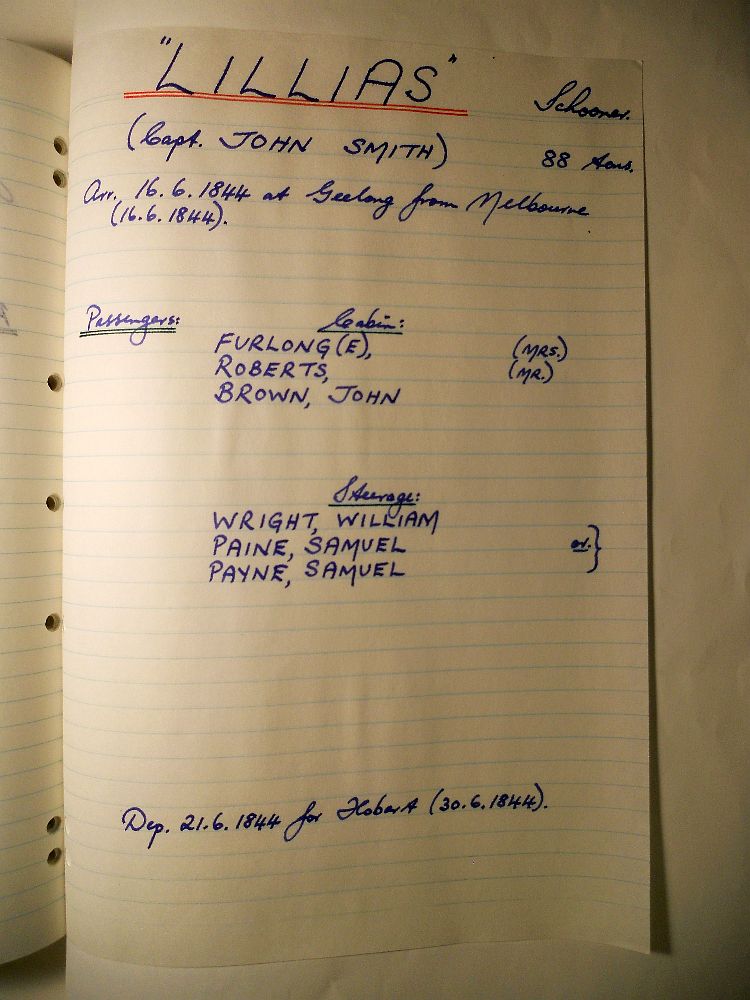 "LILLIAS" Schooner.
(Capt. JOHN SMITH) 88 tons.
Arr. 16.6.1844 at Geelong from Melbourne
(16.6.1844).
Passengers: Cabin:
FURLONG(E), (MRS.)
ROBERTS, (MR.)
BROWN, JOHN
Steerage:
WRIGHT, WILLIAM
PAINE, SAMUEL or. }
PAYNE, SAMUEL
Dep. 21.6.1844 for Hobart (30.6.1844).